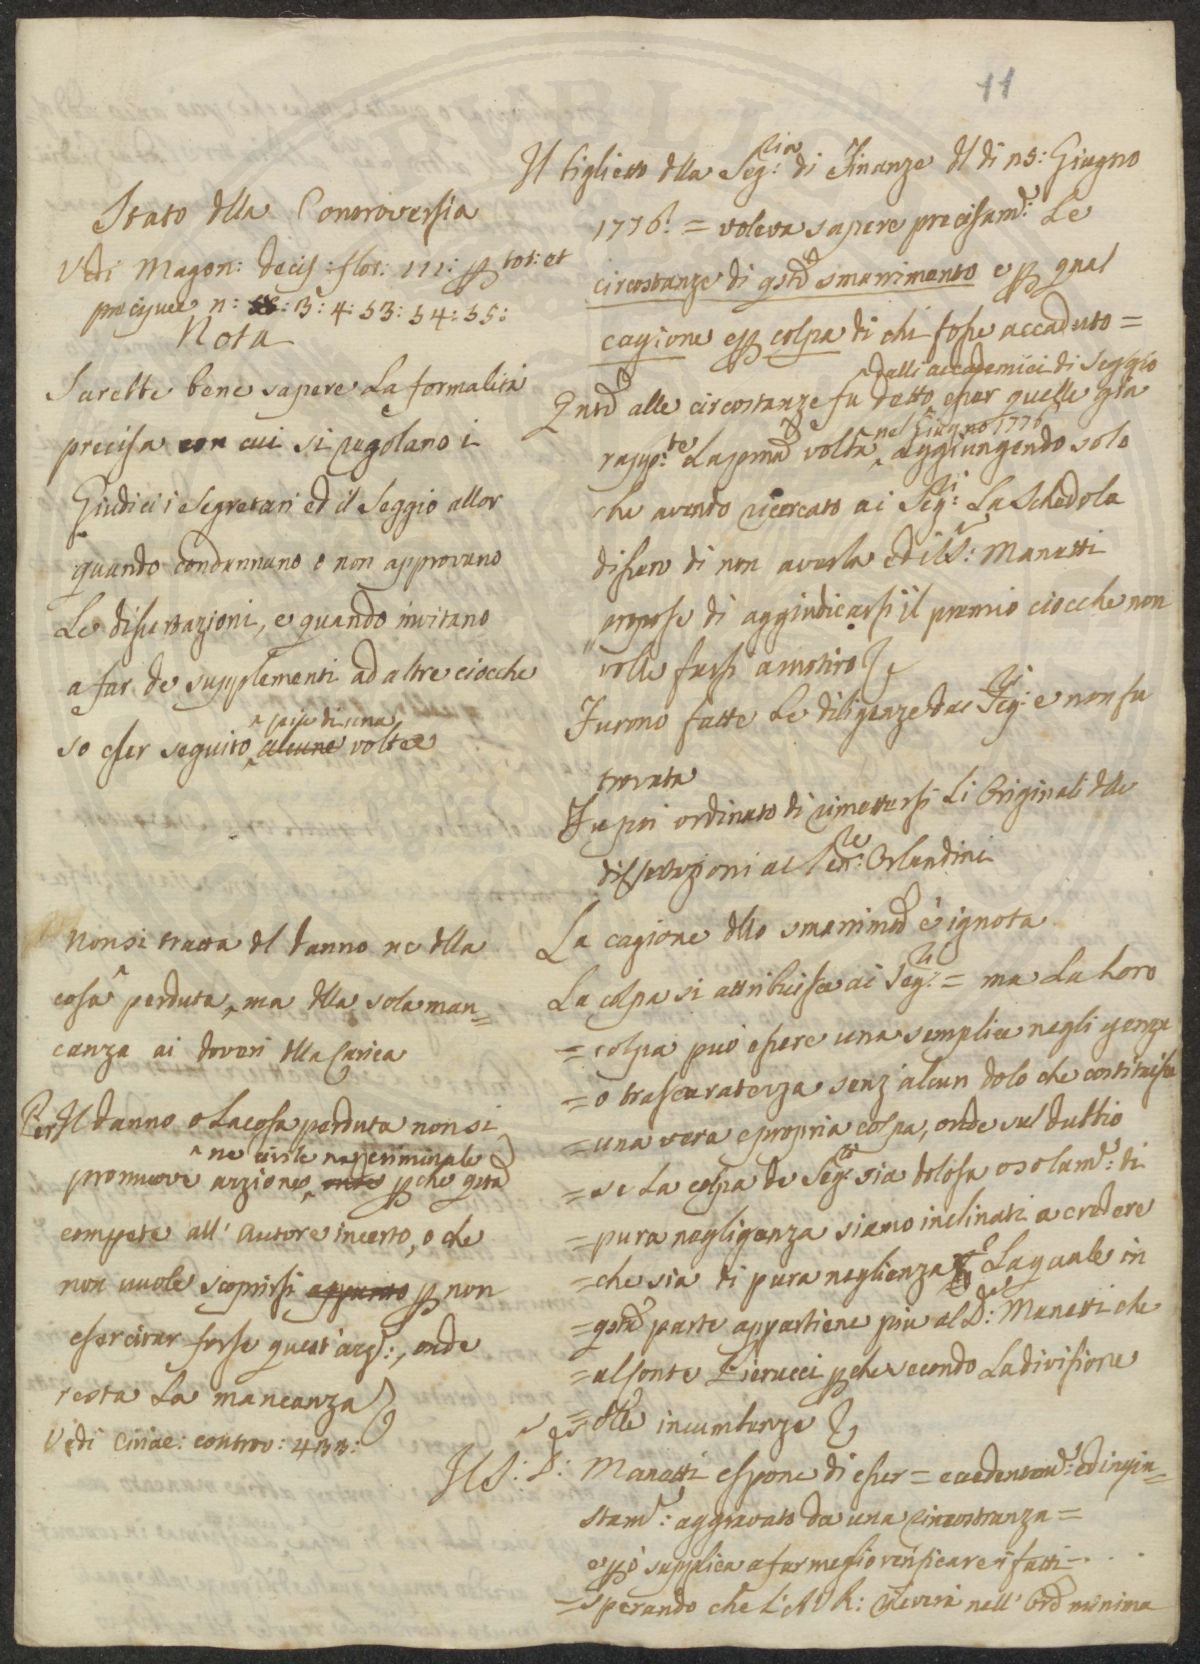 11
Stato dlla Controversia
Vedi Magon: decis: flor: 111: p tot: et
precipuee n: 3: 4: 53: 54: 55:
Nota
Sarebbe bene sapere La formalità
precisa con cui si regolano i
Giudici i Segretari ed il Seggio allor
quando condannano o non approvano
Le dissertazioni, e quando invitano
a far de supplementi ad altre ciocche
so esser seguito più di una alcune volte
Non si tratta dl danno ne dlla
cosa perduta, ma dlla sola man=
canza ai doveri dlla Carica
Per Il danno o La cosa perduta non si
promuove azzione ne civile ne criminale onde pche qsta
compete all' Autore incerto, o che
non vuole scoprirsi appunto p non
esercitar forse quest'az:, onde
resta La mancanza
Vedi Ciriac: controv: 433:
Il biglietto dlla Seg:ria di Finanze dl di 15: Giugno
1776: = voleva sapere precisam: Le
circostanze di qsto smarrimento e p qual
cagione e p colpa di chi fosse accaduto =
Qnto alle circostanze fu detto dalli accademici di Seggio esser quelle già
rapp:te La pma volta nel Giugno 1776 aggiungendo solo
che avendo ricercato ai Seg:ri La Schedola
dissero di non averla ed il S: Manetti
propose di aggiudicarsi il premio ciocche non
volle farsi a motivo
Furono fatte Le diligenze dai Seg:ri e non fu
trovata
Fu poi ordinato di rimettersi Li Originali dlle
dissertazioni al Sen:re Orlandini
La cagione dllo smarrimto è ignota
La colpa si attribuisce ai Seg:ri = ma La Loro
= colpa può essere una semplice negligenza
= o trascuratezza senz'alcun dolo che costituisca
= una vera e propria colpa, onde sul dubbio
= se La colpa de Seg:ri sia dolosa o solam: di
= pura negligenza siamo inclinati a credere
= che sia di pura neglienza La quale in
= qsta parte appartiene più al D: Manetti che
= al Conte Pierucci pche secondo La divisione
= dlle incumbenze
Il S: D: Manetti espone di esser = evidentem: ed ingiu=
stam: aggravato da una circostanza =
e pò supplica a far meglio verificare i fatti
= sperando che L'A V R: rileverà nell' Ord minima